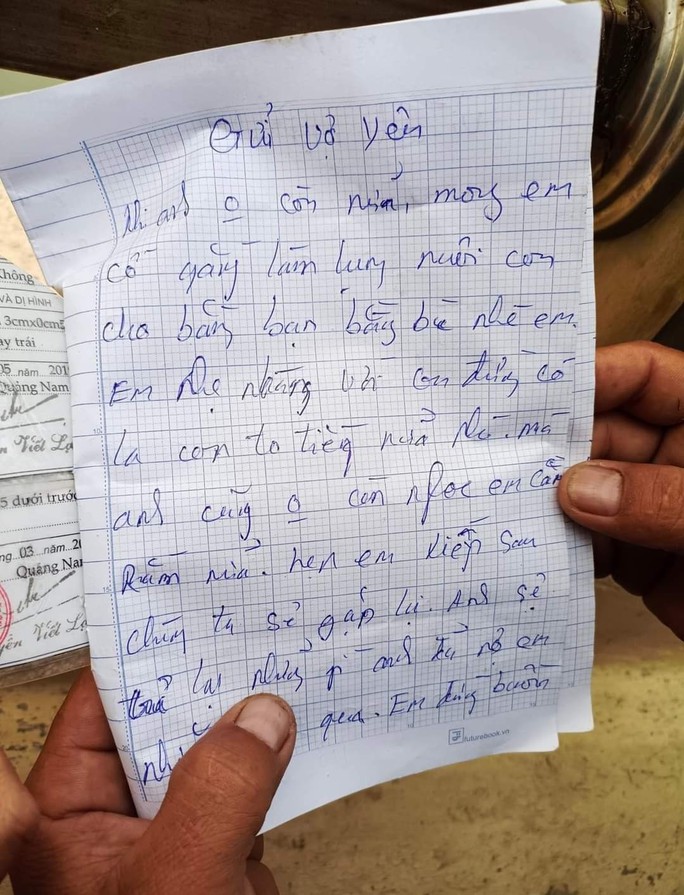 Gửi vợ yên
Khi anh o còn nữa, mong em
cố gắng làm lụng nuôi con
cho bằng bạn bằng bè nhé em.
Em nhẹ nhàng với con đừng có
la con to tiếng nữa nhé. mà
anh cũng o còn nghe em cằn
nhằn nữa. hẹn em kiếp sau
chúng ta sẽ gặp lại. Anh sẽ
trả lại những gì anh đã nợ em
qua. Em đừng buồn
futurebook.vn
Không
VÀ DỊ HÌNH
3cmx0cm5
ay trái
05 năm 201
Quảng Nam
Viết
5 dưới trước
ng 03 năm 2
Quảng Na
Viết